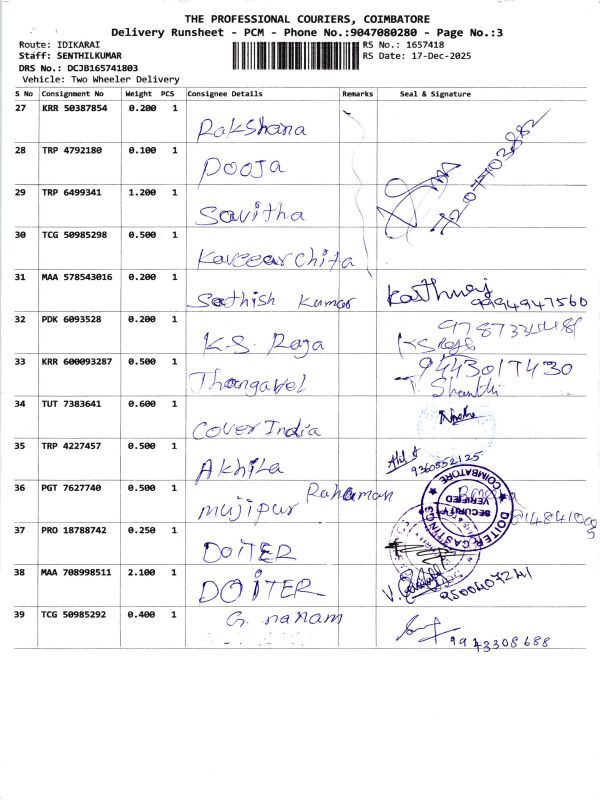 THE PROFESSIONAL COURIERS, COIMBATORE
Delivery Runsheet - PCM - Phone No.:9047080280 - Page No.:3
Route: IDIKARAI
RS No.: 1657418
Staff: SENTHILKUMAR
RS Date: 17-Dec-2025
DRS No.: DCJB165741803
Vehicle: Two Wheeler Delivery
S No Consignment No Weight PCS Consignee Details Remarks Seal & Signature
27 KRR 50387854 0.200 1 Rakshana
28 TRP 4792180 0.100 1 Pooja
29 TRP 6499341 1.200 1 Savitha
30 TCG 50985298 0.500 1
31 MAA 578543016 0.200 1 Sathish Kumar 9994947560
32 PDK 6093528 0.200 1 K.S. Raja
33 KRR 600093287 0.500 1 Thangavel 9443017430
T. Shanthi
34 TUT 7383641 0.600 1 Cover India
35 TRP 4227457 0.500 1 Akhila 9360552125
36 PGT 7627740 0.500 1 Mujipur Rahaman
DOITER CASTINGS
COIMBATORE
SECURITY
VERIFIED
37 PRO 18788742 0.250 1 DOITER
38 MAA 708998511 2.100 1 DOITER 9500407241
39 TCG 50985292 0.400 1 9943308688